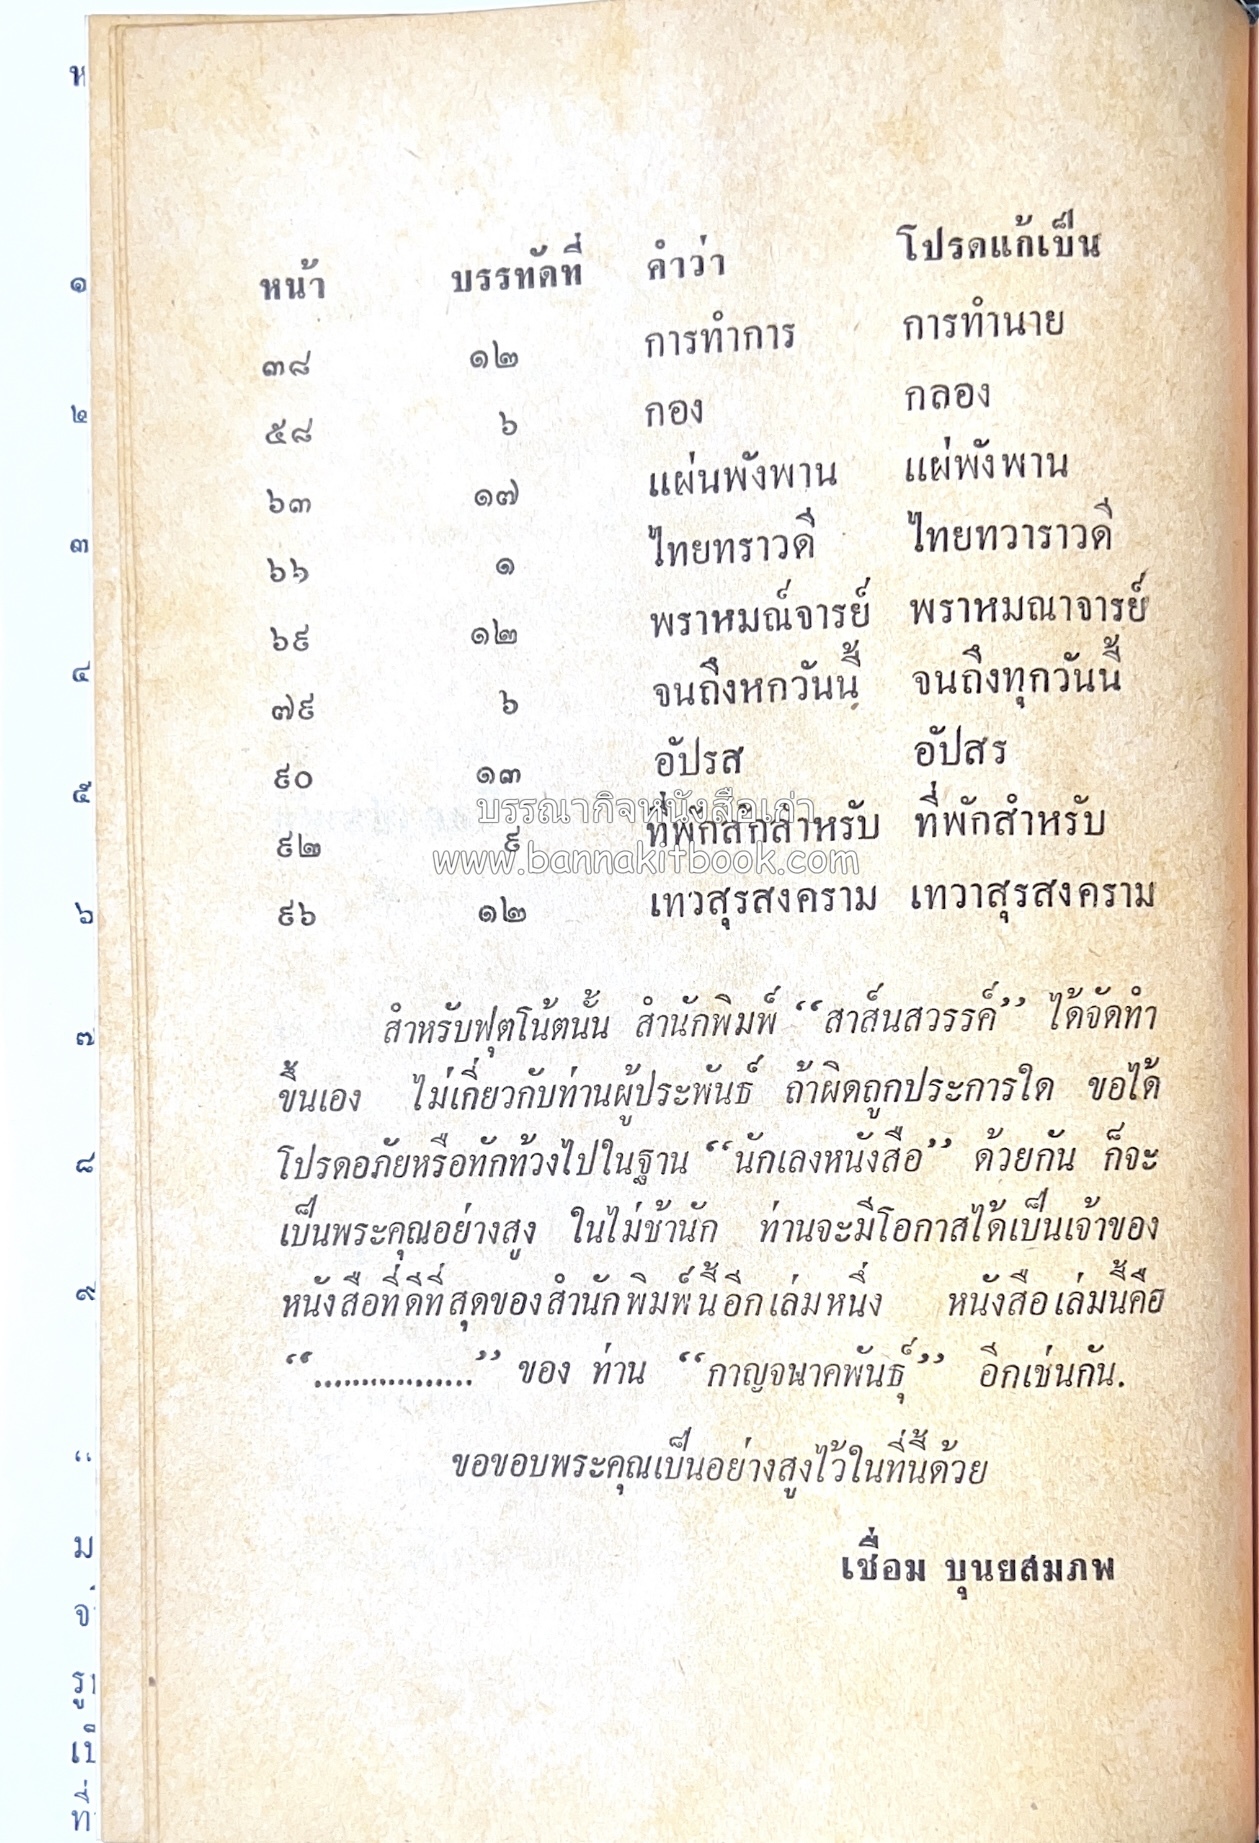 หน้า บรรทัดที่ คำว่า โปรดแก้เป็น
๓๘ ๑๒ การทำการ การทำนาย
๕๘ ๖ กอง กลอง
๖๓ ๑๗ แผ่นพังพาน แผ่พังพาน
๖๖ ๑ ไทยทราวดี ไทยทวาราวดี
๖๙ ๑๒ พราหมณ์จารย์ พราหมณาจารย์
๗๙ ๖ จนถึงหกวันนี้ จนถึงทุกวันนี้
๙๐ ๑๓ อัปรส อัปสร
บรรณากิจหนังสือเก่า
๙๒ ๙ ที่พักสักสำหรับ ที่พักสำหรับ
www.bannakitbook.com
๙๖ ๑๒ เทวสุรสงคราม เทวาสุรสงคราม
สำหรับฟุตโน้ตนั้น สำนักพิมพ์ “สาส์นสวรรค์” ได้จัดทำ
ขึ้นเอง ไม่เกี่ยวกับท่านผู้ประพันธ์ ถ้าผิดถูกประการใด ขอได้
โปรดอภัยหรือทักท้วงไปในฐาน “นักเลงหนังสือ” ด้วยกัน ก็จะ
เป็นพระคุณอย่างสูง ในไม่ช้านัก ท่านจะมีโอกาสได้เป็นเจ้าของ
หนังสือที่ดีที่สุดของสำนักพิมพ์นี้อีกเล่มหนึ่ง หนังสือเล่มนี้คือ
“.................” ของ ท่าน “กาญจนาคพันธุ์” อีกเช่นกัน.
ขอขอบพระคุณเป็นอย่างสูงไว้ในที่นี้ด้วย
เชื่อม บุนยสมภพ
๑
๒
๓
๔
๕
๖
๗
๘
๙